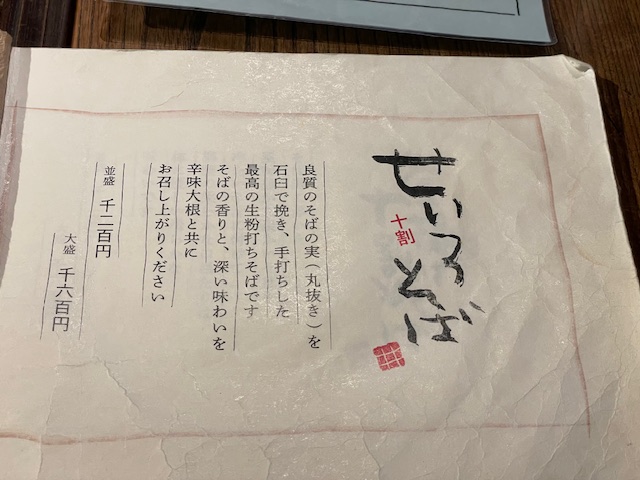 せいろそば
十割
良質のそばの実（丸抜き）を
石臼で挽き、手打ちした
最高の生粉打ちそばです
そばの香りと、深い味わいを
辛味大根と共に
お召し上がりください
並盛 千二百円
大盛 千六百円